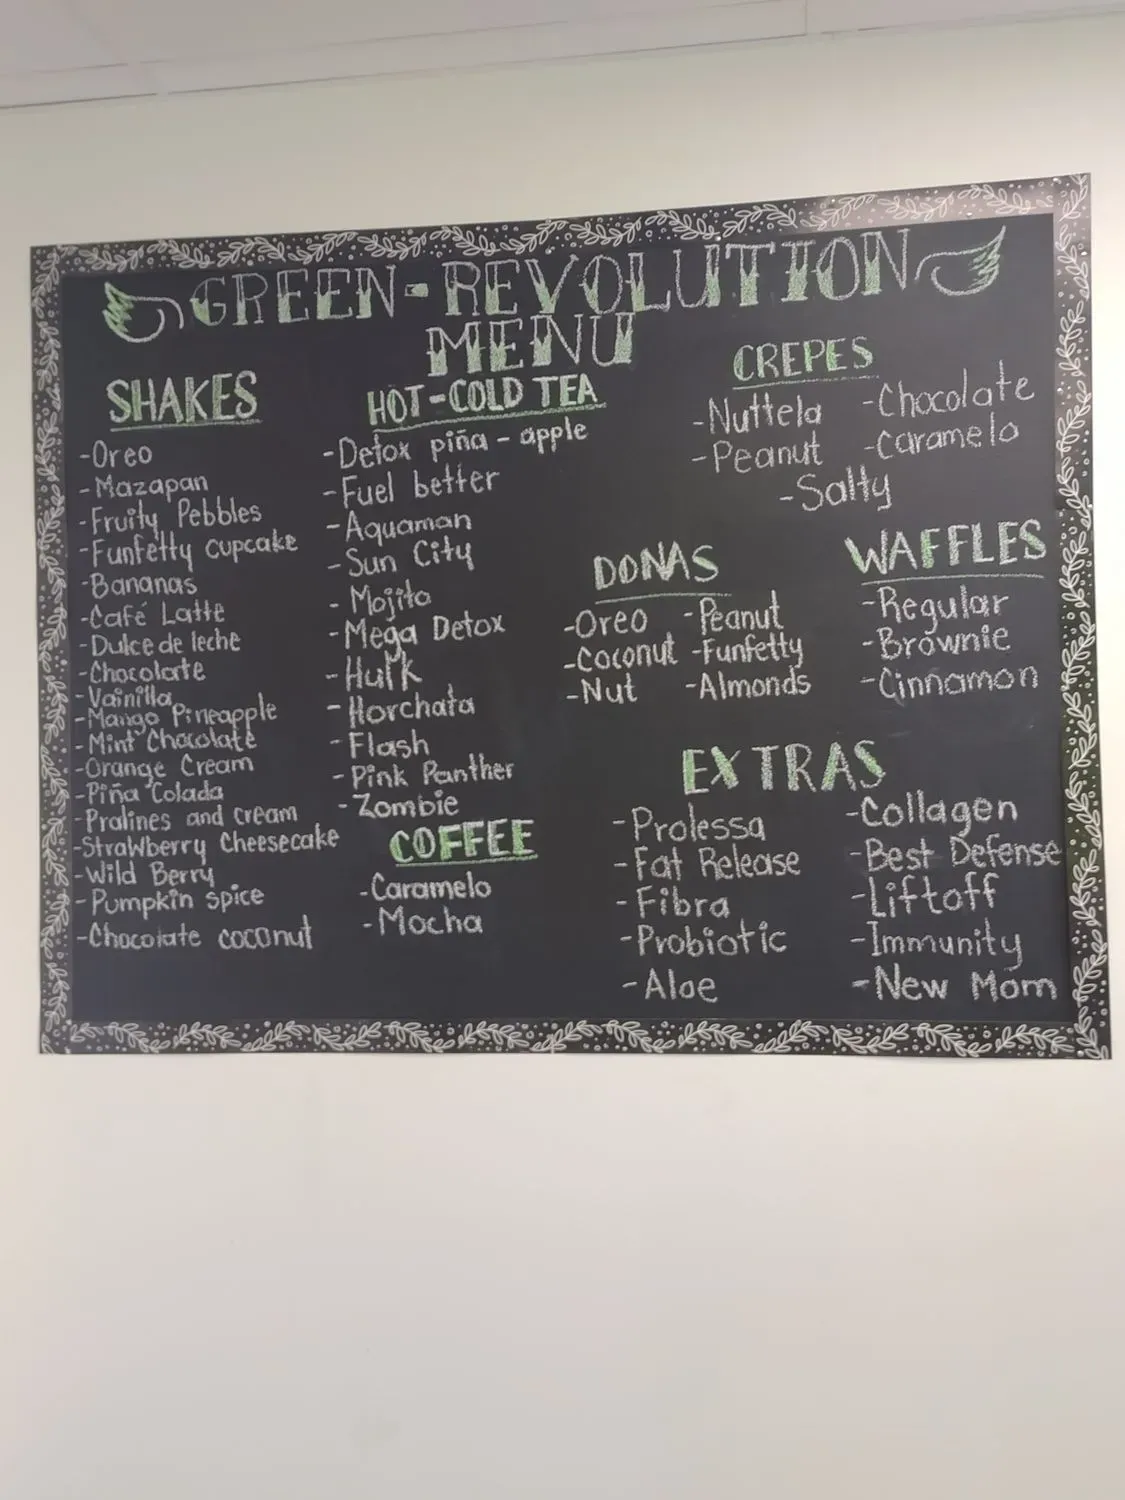 GREEN-REVOLUTION
MENU
SHAKES
-Oreo
-Mazapan
-Fruity Pebbles
-Funfetty cupcake
-Bananas
-Café Latte
-Dulce de leche
-Chocolate
-Vainilla
-Mango Pineapple
-Mint Chocolate
-Orange Cream
-Piña Colada
-Pralines and cream
-Strawberry Cheesecake
-Wild Berry
-Pumpkin spice
-Chocolate coconut
HOT-COLD TEA
-Detox piña - apple
-Fuel better
-Aquaman
-Sun City
-Mojito
-Mega Detox
-Hulk
-Horchata
-Flash
-Pink Panther
-Zombie
COFFEE
-Caramelo
-Mocha
CREPES
-Nuttela -Chocolate
-Peanut -Caramelo
-Salty
DONAS
-Oreo -Peanut
-Coconut -Funfetty
-Nut -Almonds
WAFFLES
-Regular
-Brownie
-Cinnamon
EXTRAS
-Prolessa -Collagen
-Fat Release -Best Defense
-Fibra -Liftoff
-Probiotic -Immunity
-Aloe -New Mom